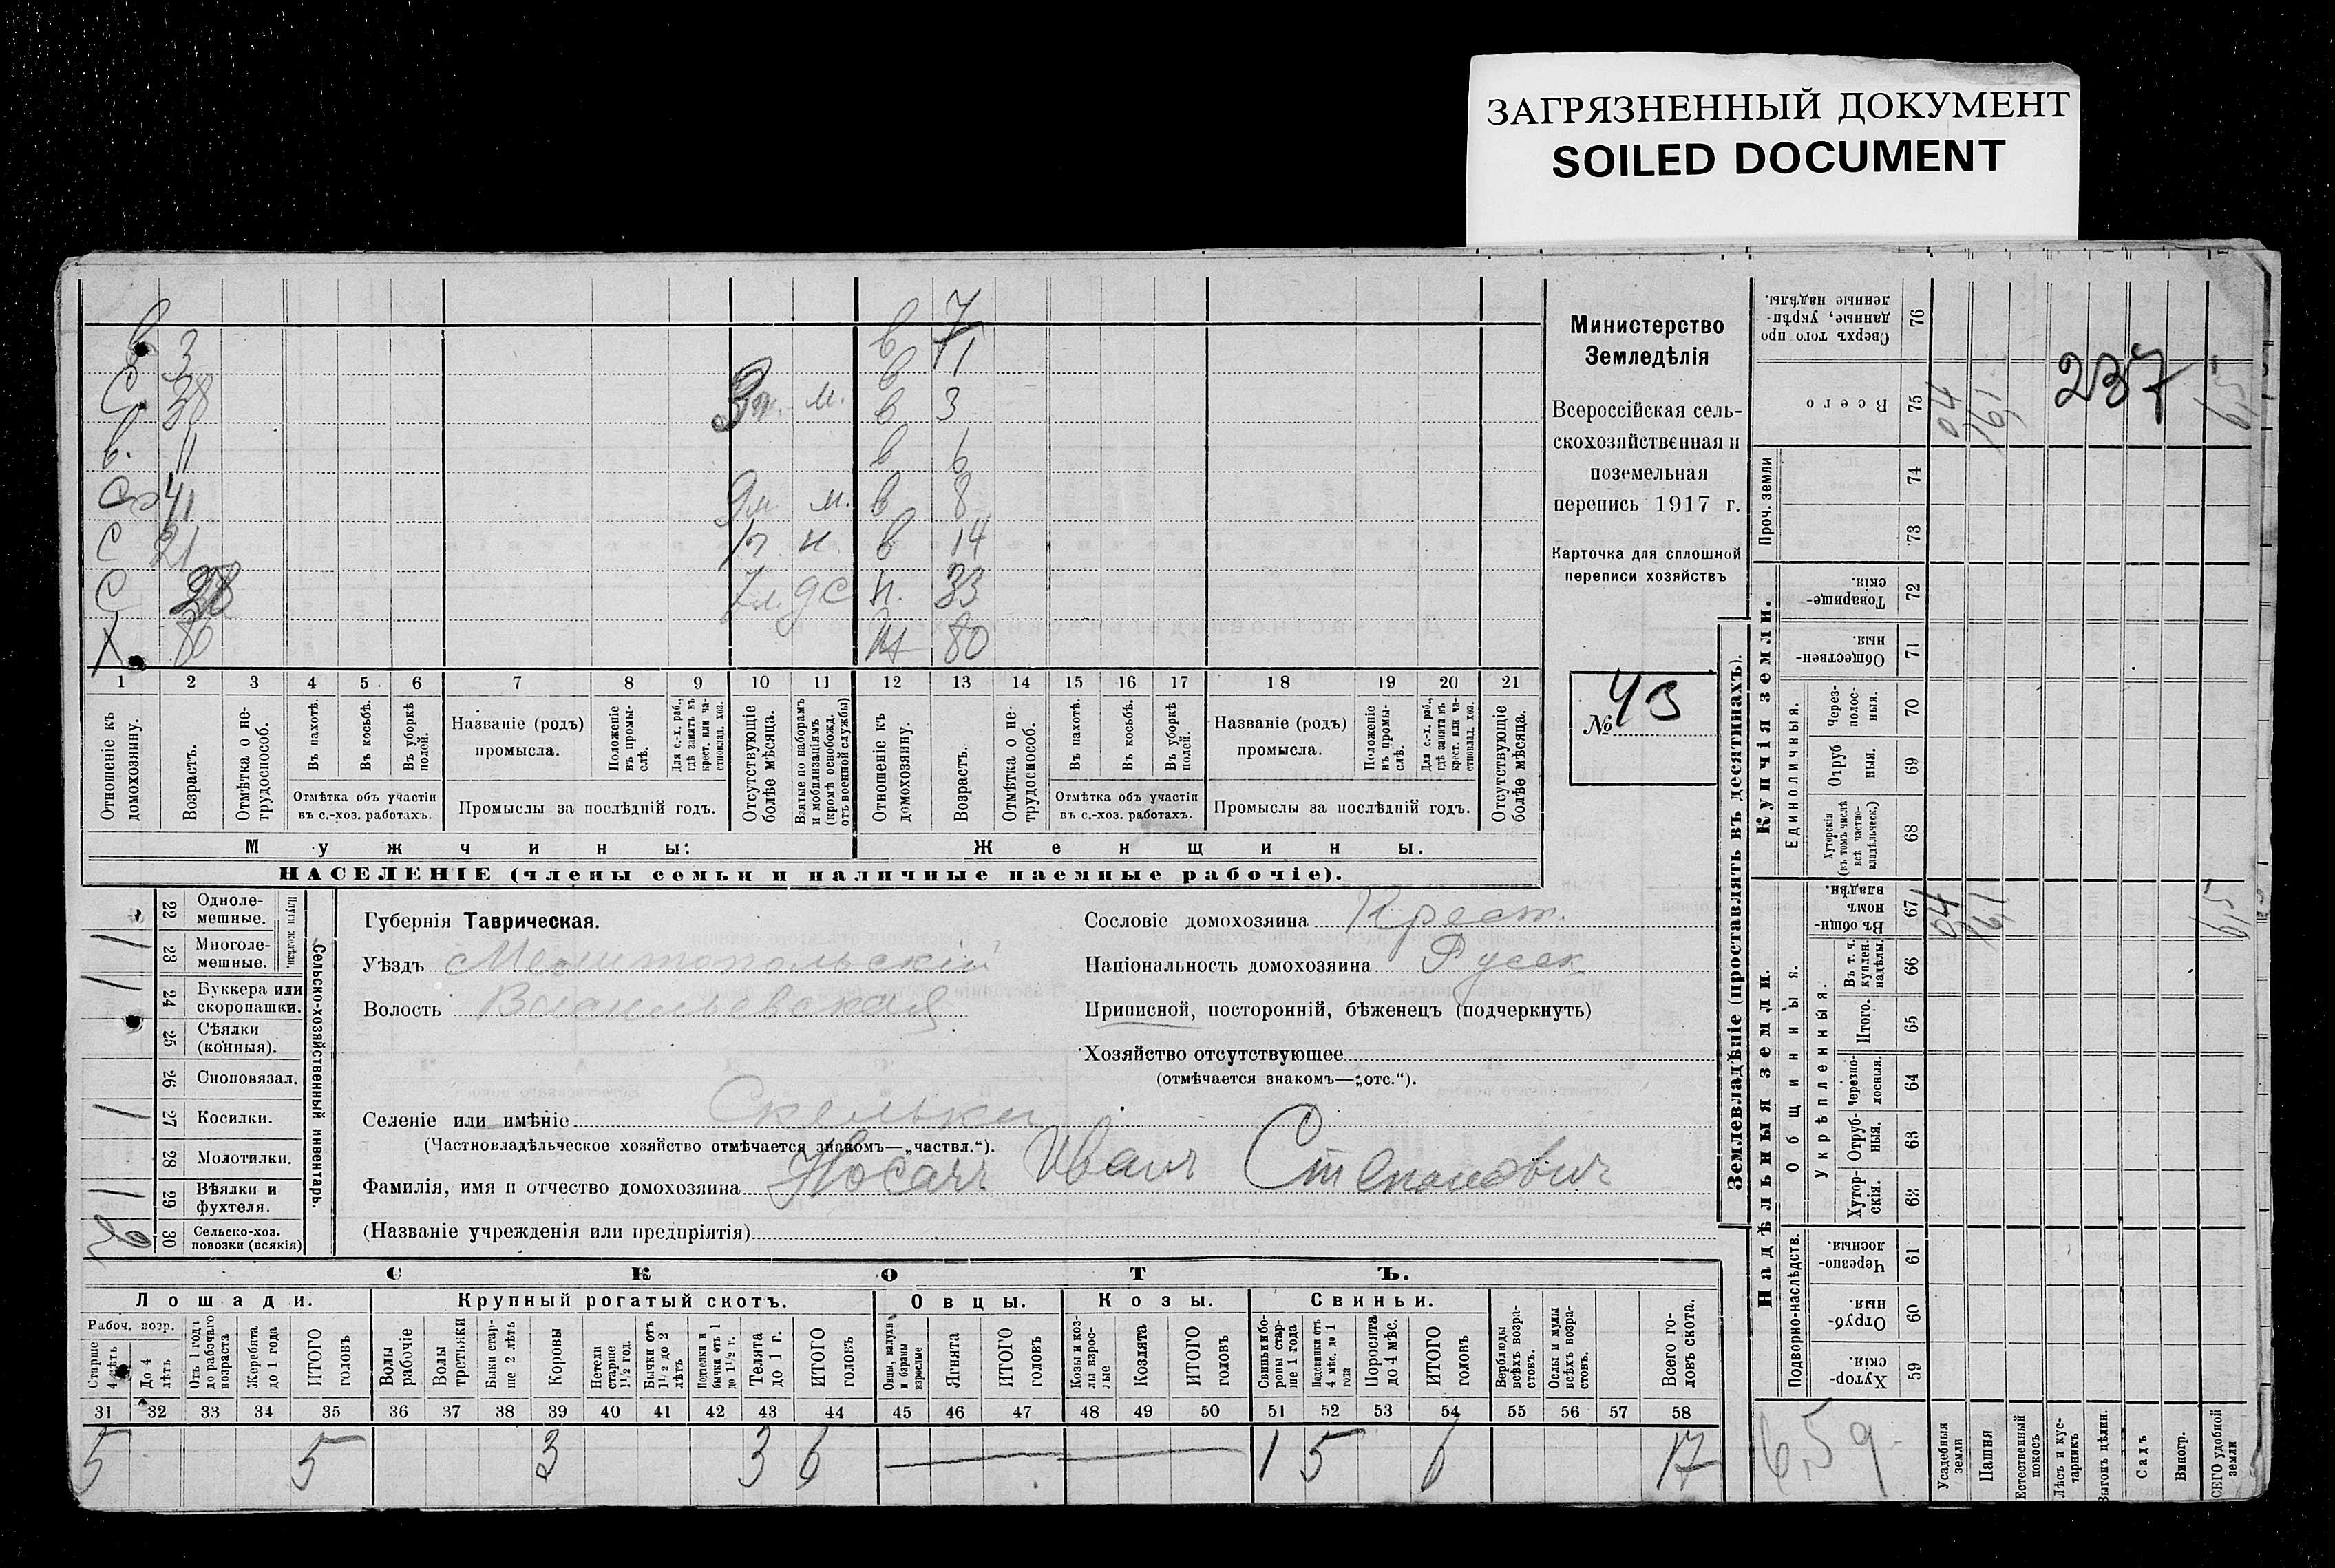 ЗАГРЯЗНЕННЫЙ ДОКУМЕНТ
SOILED DOCUMENT
в 7
в 3 в 11
С 38 м. в 3
в. 11 в 6
41 9м м. в 8
С 21 н. в 14
С 7м. дс н. 33
Х 80 М 80
1 2 3 4 5 6 7 8 9 10 11 12 13 14 15 16 17 18 19 20 21
Отношеніе къ домохозяину.
Возрастъ.
Отмѣтка о нетрудоспособ.
Въ пахотѣ.
Въ косьбѣ.
Въ уборкѣ полей.
Отмѣтка объ участіи въ с.-хоз. работахъ.
Названіе (родъ) промысла.
Положеніе въ промыслѣ.
Для с.-х. раб., гдѣ занятъ въ крест. или частновлад. хоз.
Промыслы за послѣдній годъ.
Отсутствующіе болѣе мѣсяца.
Взятые по наборамъ и мобилизаціямъ (кромѣ освобожд. отъ военной службы)
Отношеніе къ домохозяину.
Возрастъ.
Отмѣтка о нетрудоспособ.
Въ пахотѣ.
Въ косьбѣ.
Въ уборкѣ полей.
Отмѣтка объ участіи въ с.-хоз. работахъ.
Названіе (родъ) промысла.
Положеніе въ промыслѣ.
Для с.-х. раб., гдѣ занята въ крест. или частновлад. хоз.
Промыслы за послѣдній годъ.
Отсутствующіе болѣе мѣсяца.
Мужчины. Женщины.
НАСЕЛЕНІЕ (члены семьи и наличные наемные рабочіе).
Министерство
Земледѣлія
Всероссійская сель-
скохозяйственная и
поземельная
перепись 1917 г.
Карточка для сплошной
переписи хозяйствъ
№ 43
22 Однолемешные.
23 Многолемешные.
Плуги желѣзн.
24 Буккера или скоропашки.
25 Сѣялки (конныя).
26 Сноповязал.
27 Косилки.
28 Молотилки.
29 Вѣялки и фухтеля.
30 Сельско-хоз. повозки (всякія)
Сельско-хозяйственный инвентарь.
Губернія Таврическая.
Уѣздъ Мелитопольскій
Волость Васильевская
Селеніе или имѣніе Скельки
(Частновладѣльческое хозяйство отмѣчается знакомъ—„частвл.“).
Фамилія, имя и отчество домохозяина Носачъ Иванъ Степановичъ
(Названіе учрежденія или предпріятія)
Сословіе домохозяина Крест.
Національность домохозяина Русск
Приписной, посторонній, бѣженецъ (подчеркнуть)
Хозяйство отсутствующее
(отмѣчается знакомъ—„отс.“).
СКОТЪ.
Лошади. Крупный рогатый скотъ. Овцы. Козы. Свиньи.
Рабоч. возр.
Старше 4 лѣтъ
До 4 лѣтъ
Отъ 1 года до рабочаго возраста
Жеребята до 1 года
ИТОГО головъ
Волы рабочіе
Волы третьяки
Быки старше 2 лѣтъ
Коровы
Нетели старше 1½ год.
Бычки отъ 1½ до 2 лѣтъ
Подтелки и бычки отъ 1 до 1½ г.
Телята до 1 г.
ИТОГО головъ
Овцы, валухи и бараны взрослые
Ягнята
ИТОГО головъ
Козы и козлы взрослые
Козлята
ИТОГО головъ
Свиньи и боровы старше 1 года
Подсвинки отъ 4 мѣс. до 1 года
Поросята до 4 мѣс.
ИТОГО головъ
Верблюды всѣхъ возрастовъ.
Ослы и мулы всѣхъ возрастовъ.
Всего головъ скота.
31 32 33 34 35 36 37 38 39 40 41 42 43 44 45 46 47 48 49 50 51 52 53 54 55 56 57 58
5 5 3 3 6 1 5 6 17
Землевладѣніе (проставлять въ десятинахъ).
Надѣльныя земли. Купчія земли.
Сверхъ того проданные, укрѣпленные надѣлы. 76
Всего 75 04 161 237 659
Проч. земли 74 73
Товарищескія. 72
Общественныя. 71
Единоличныя.
Черезполосныя. 70
Отрубныя. 69
Хуторскія (въ томъ числѣ всѣ частновладѣльческ.) 68
Въ общинномъ владѣн. 67 04 161 659
Общинныя.
Укрѣпленныя.
Въ т. ч. куплен. надѣлы. 66
Итого. 65
Черезполосныя. 64
Отрубныя. 63
Хуторскія. 62
Подворно-наслѣдств.
Черезполосныя. 61
Отрубныя. 60
Хуторскія. 59
659
Усадебныя земли
Пашня
Естественный покосъ
Лѣсъ и кустарникъ
Выгонъ цѣлин.
Садъ
Виногр.
ВСЕГО удобной земли